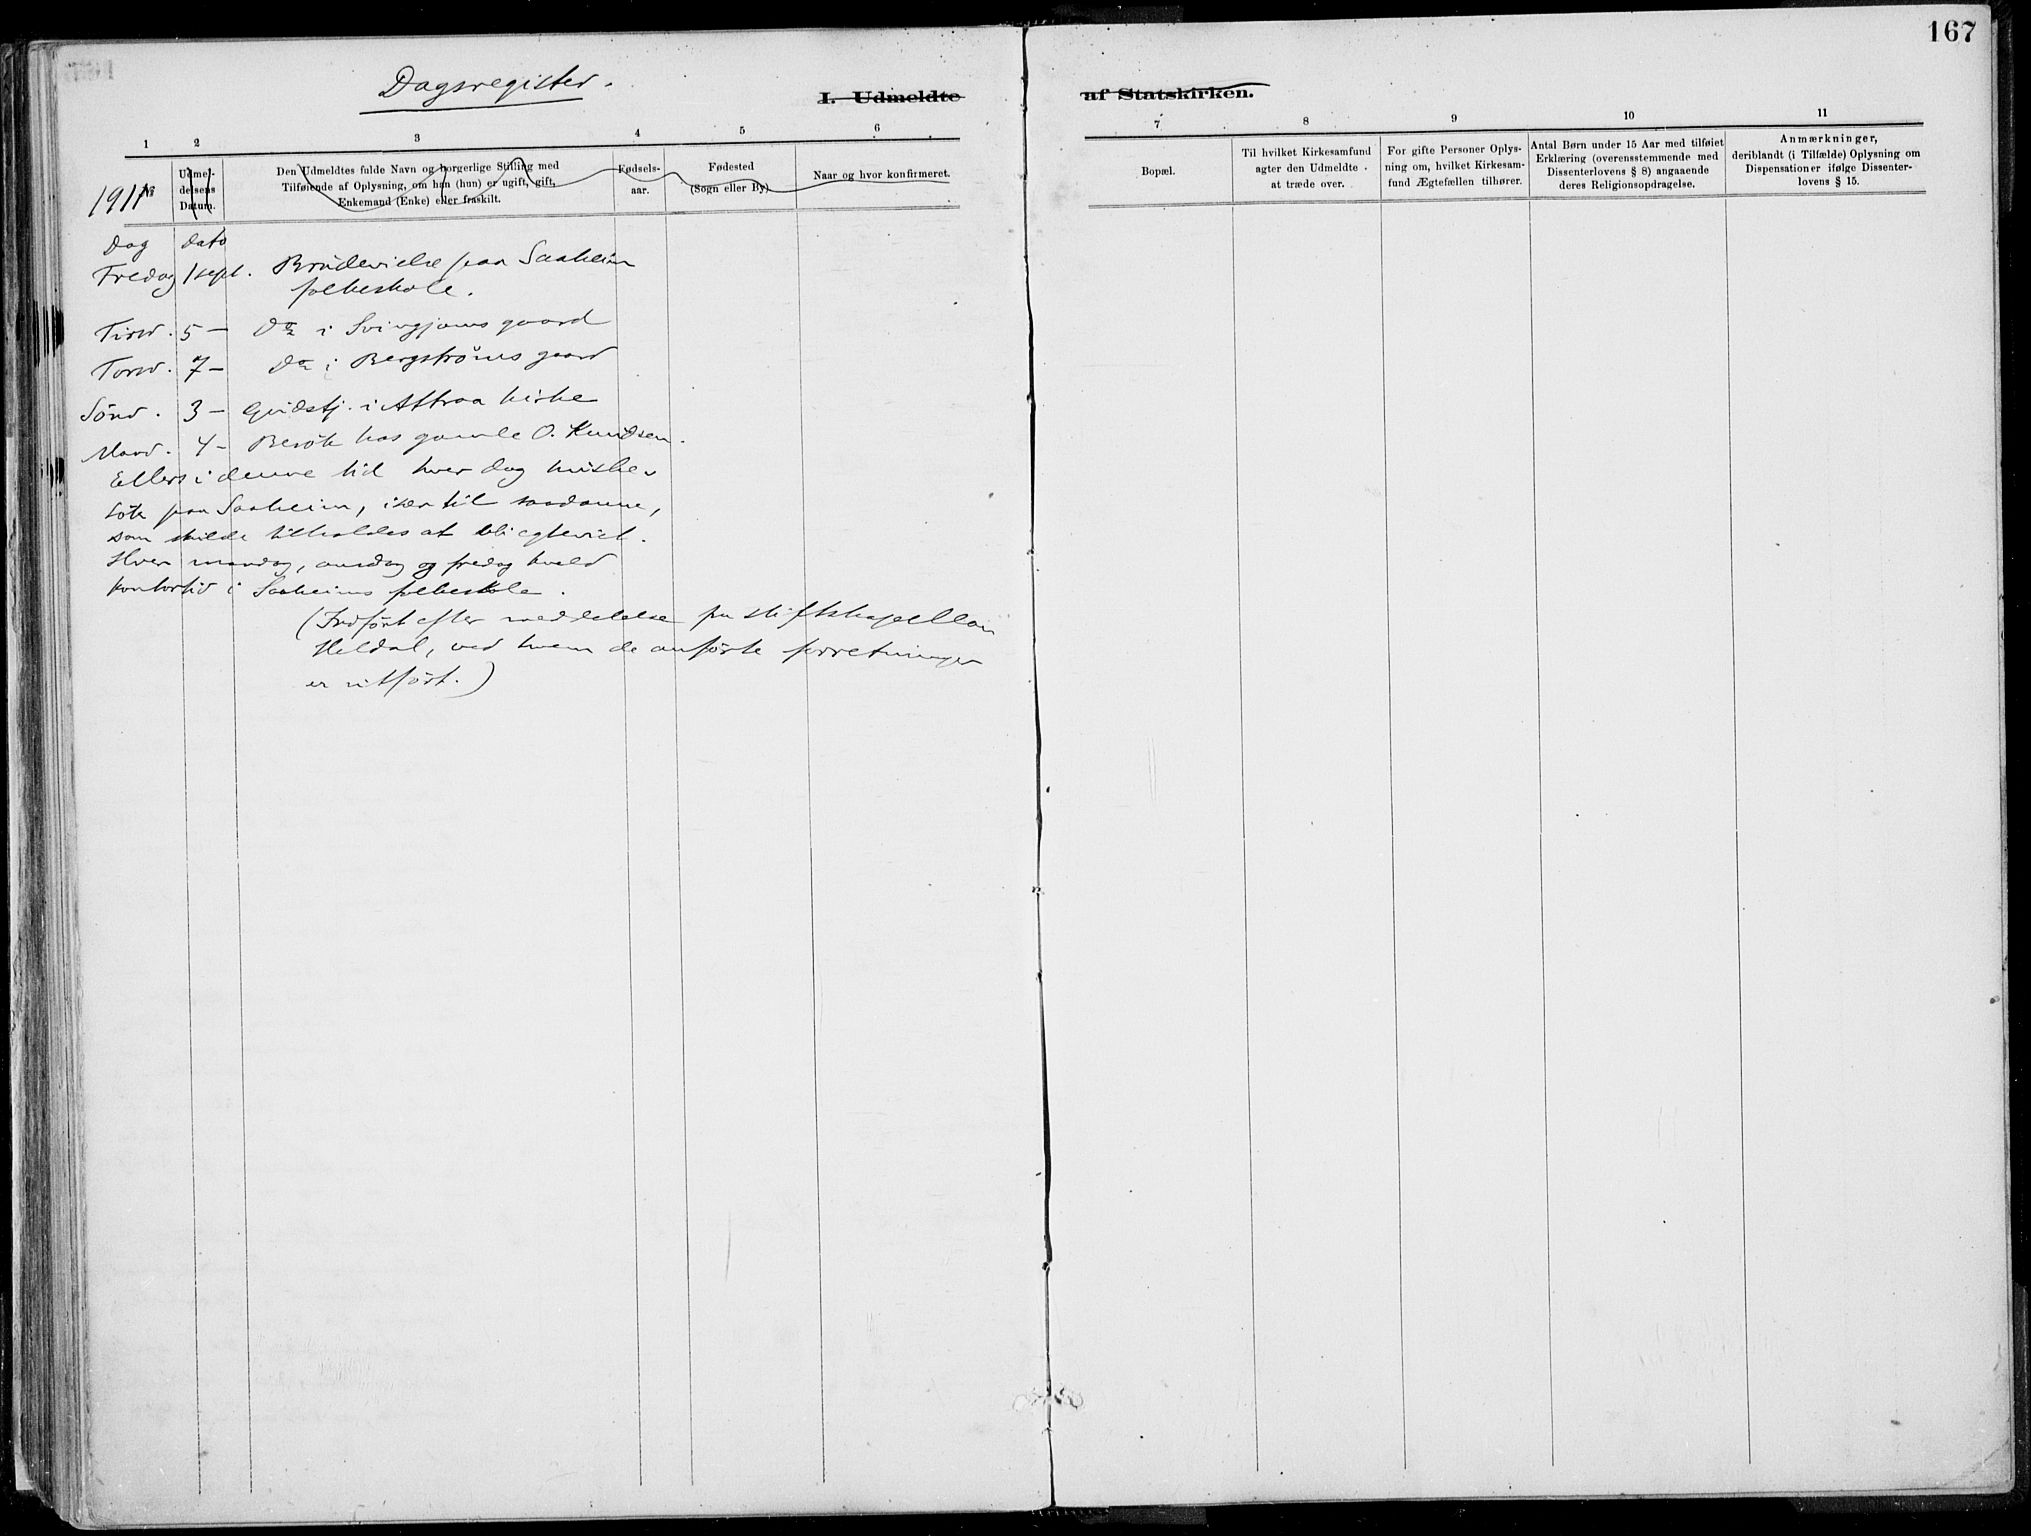 167
Dagsregister.
I. Udmeldte af Statskirken.
1 2 3 4 5 6 7 8 9 10 11
1911
№
Udmel-
delsens
Datum.
Den Udmeldtes fulde Navn og borgerlige Stilling med
Tilføiende af Oplysning, om han (hun) er ugift, gift,
Enkemand (Enke) eller fraskilt.
Fødsels-
aar.
Fødested
(Sogn eller By)
Naar og hvor konfirmeret.
Bopæl.
Til hvilket Kirkesamfund
agter den Udmeldte
at træde over.
For gifte Personer Oplys-
ning om, hvilket Kirkesam-
fund Ægtefællen tilhører.
Antal Børn under 15 Aar med tilføiet
Erklæring (overensstemmende med
Dissenterlovens § 8) angaaende
deres Religionsopdragelse.
Anmærkninger,
deriblandt (i Tilfælde) Oplysning om
Dispensationer ifølge Dissenter-
lovens § 15.
Dag dato
Fredag 1 sept. Brudevielse paa Saaheim
folkeskole.
Tirsd. 5 – Do i Svingjoms gaard
Torsd. 7 – Do i Bergströms gaard
Sönd. 3 – Gudstj. i Attraa kirke
Mand. 4 – Besök hos gamle O. Knudsen.
Ellers i denne tid hver dag husbe-
sök paa Saaheim, især til saadanne,
som skulde tilholdes at bli egteviet.
Hver mandag, onsdag og fredag kveld
kontortid i Saaheims folkeskole.
(Indført efter meddelelse fra stiftskapellan
Heldal, ved hvem de anførte forretninger
er utført.)